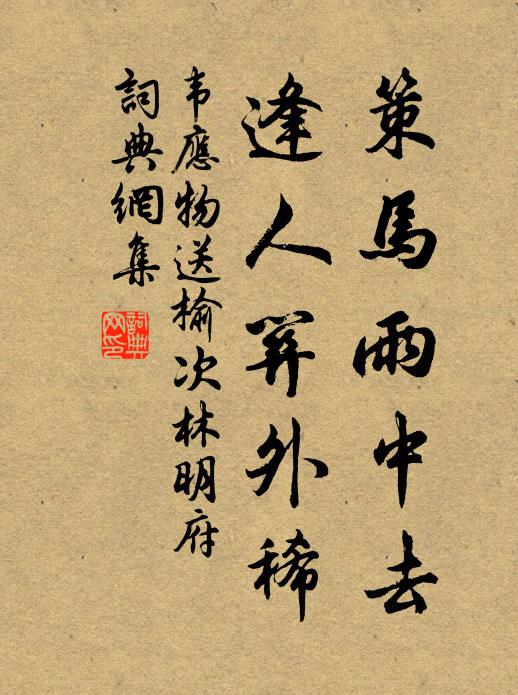 策馬雨中去
逢人關外稀
韋應物送榆次林明府
詞典網集
詞典网印